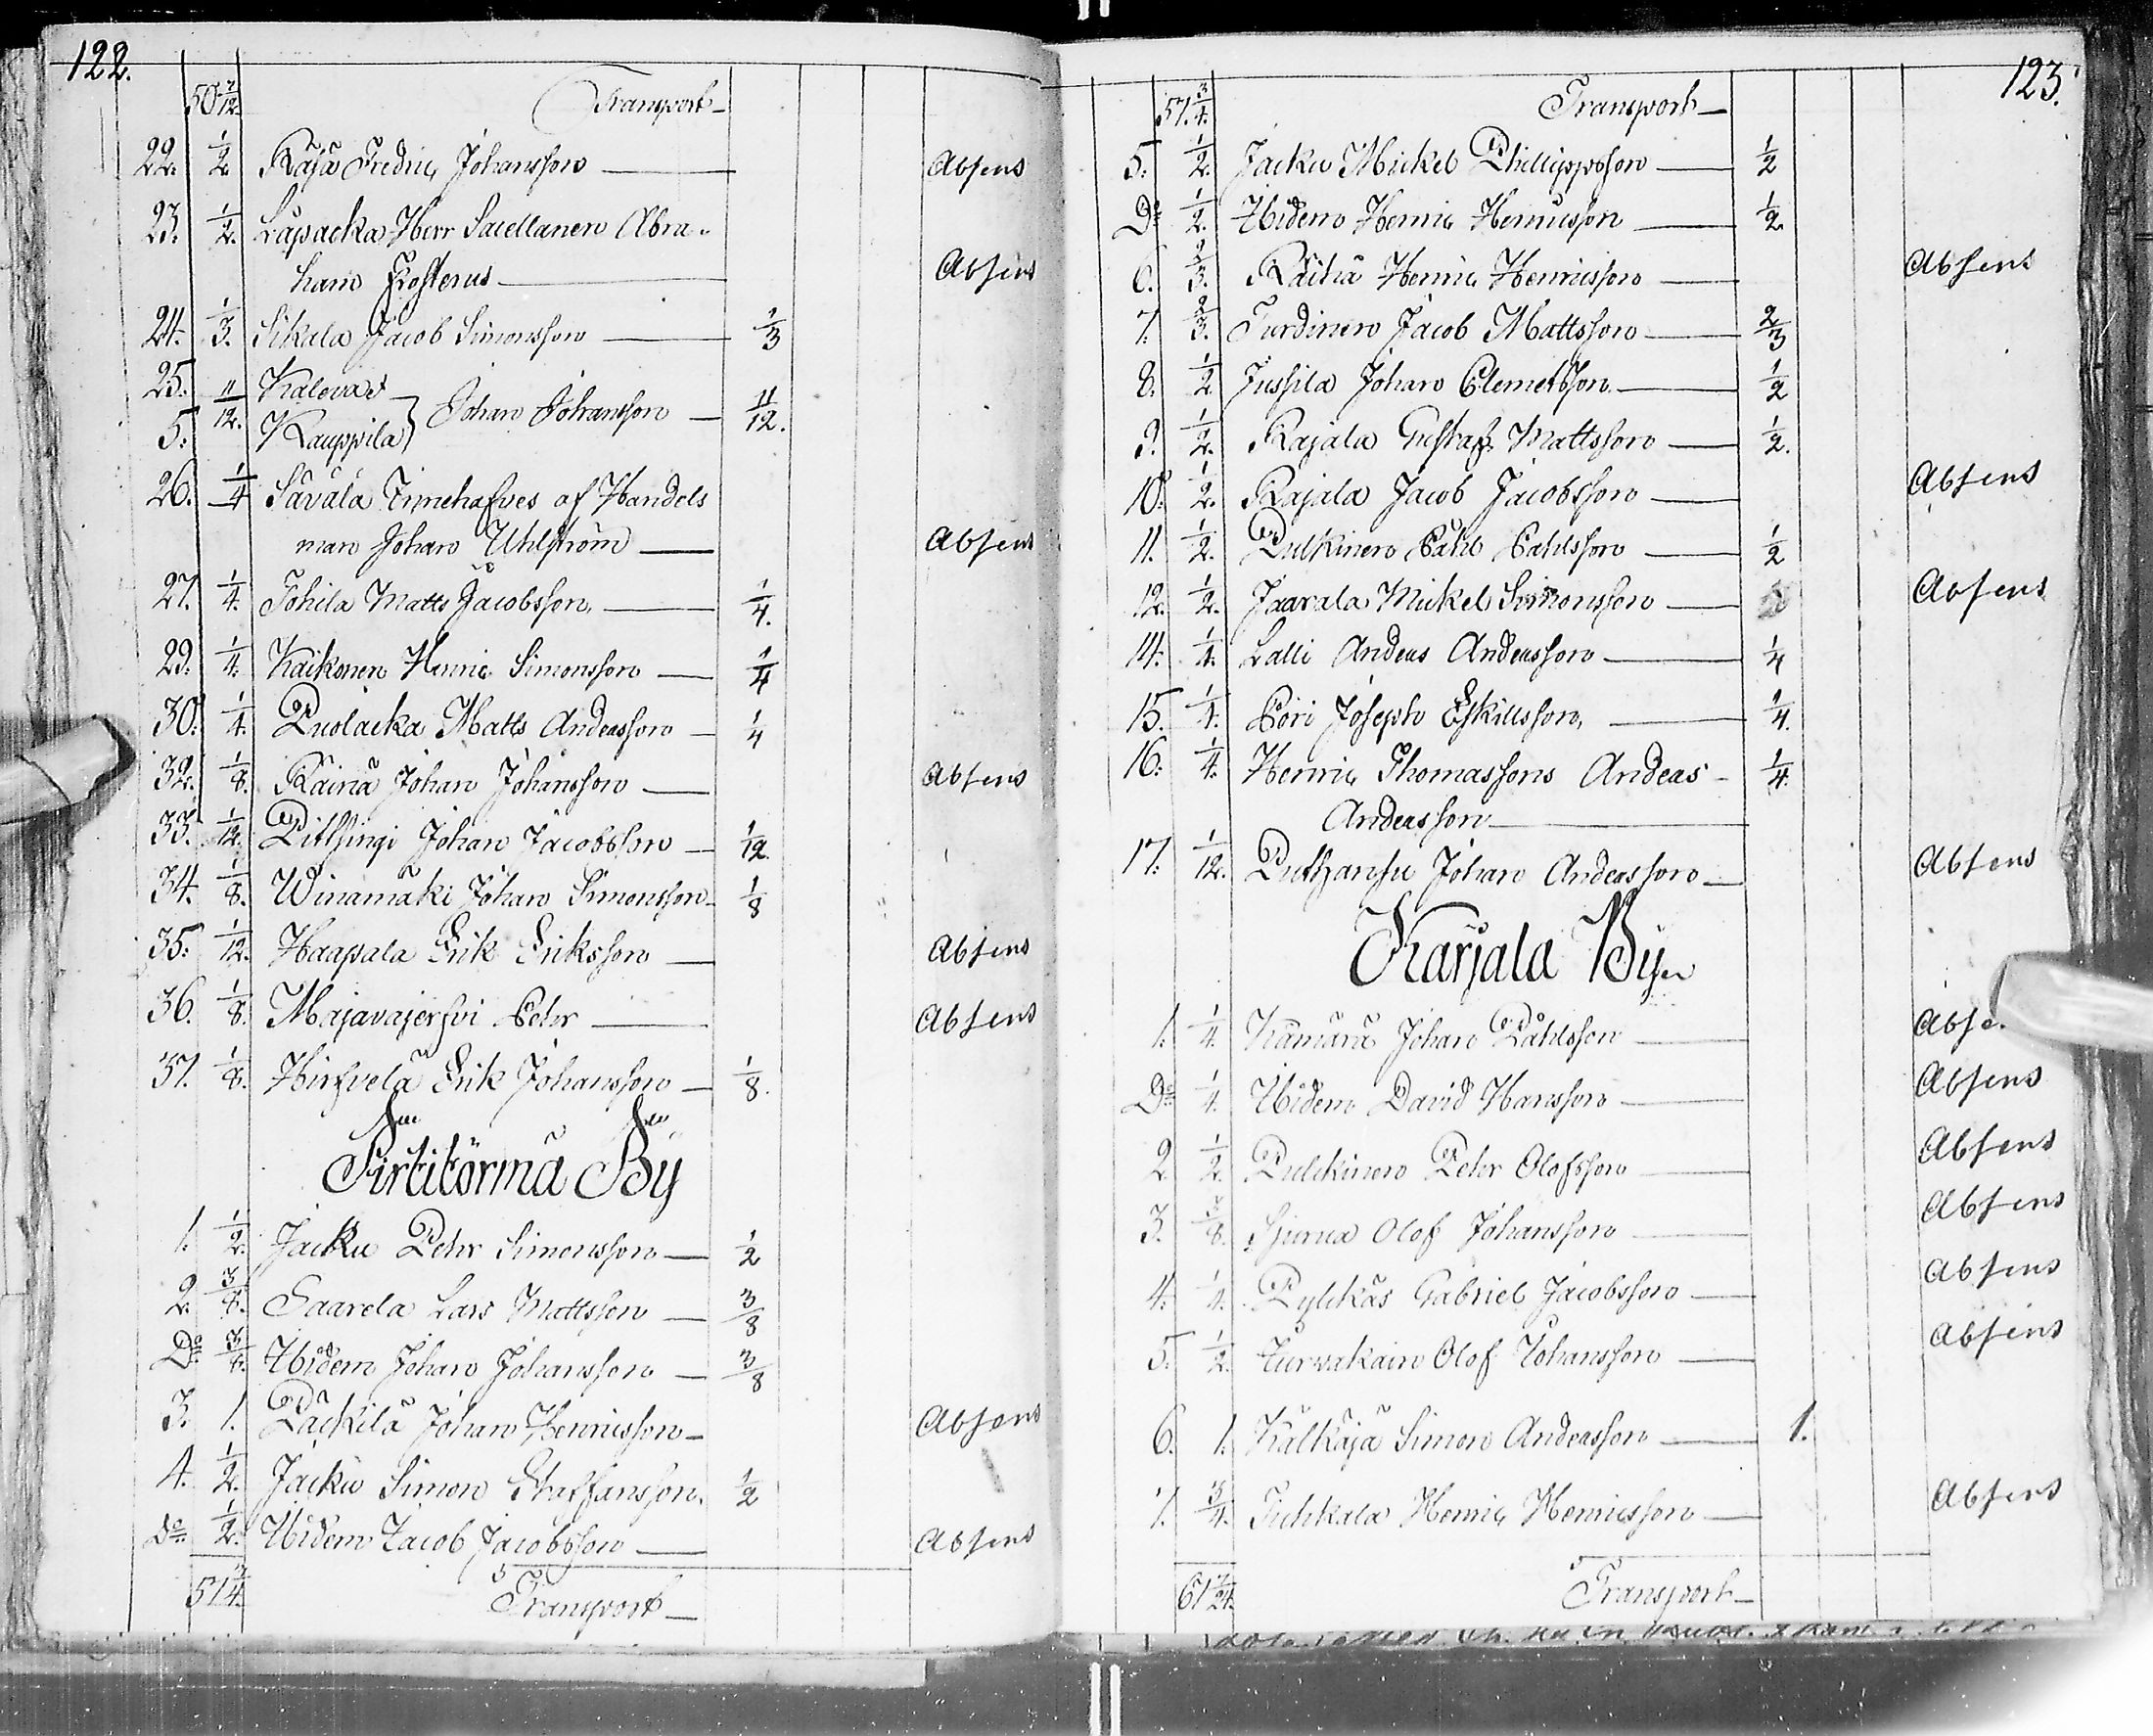 122.
50 7/12. Transport
22. 1/2 Raja Fredric Johansson Absens
23. 1/2. Lapacka Herr Sacellanen Abra-
ham Frosterus Absens
24. 1/3. Sikala Jacob Simonsson 1/3
25. 11/12. Kalewa
5: Kauppila } Johan Johansson 11/12.
26. 1/4 Säväla Innehafves af Handels
man Johan Uhlström Absens
27. 1/4. Tohila Matts Jacobsson 1/4.
29. 1/4. Kaikonen Henric Simonsson 1/4
30. 1/4. Puolacka Matts Andersson 1/4
32. 1/8. Rainä Johan Johansson Absens
33. 1/12. Johan Jacobsson 1/12.
34. 1/8. Winamäki Johan Simonsson 1/8
35: 1/12. Haapala Erik Eriksson Absens
36. 1/8. Majavajerfvi Pehr Absens
37. 1/8. Hirfvelä Erik Johansson 1/8.
Sirtitörmä By
1. 1/2. Jacku Pehr Simonsson 1/2
2. 3/8. Saarela Lars Mattsson 3/8
Do 3/8. Ibidem Johan Johansson 3/8
3. 1. Päckilä Johan Henricsson Absens
4. 1/2. Jacku Simon Staffansson 1/2
Do 1/2. Ibidem Jacob Jacobsson Absens
57 3/4. Transport
123.
57. 3/4. Transport
5. 1/2. Jacku Mickel Philippsson 1/2
Do 1/2. Ibidem Henric Henricsson 1/2
6. 2/3. Räihä Henric Henricsson Absens
7. 2/3. Turdinen Jacob Mattsson 2/3
8. 1/2 Jussila Johan Clemetsson 1/2
9. 1/2. Rajala Gustaf Mattsson 1/2.
10. 1/2. Rajala Jacob Jacobsson Absens
11. 1/2. Pulkinen Påhl Pahlsson 1/2
12. 1/2. Jaarala Mickel Simonsson Absens
14. 1/4. Lalli Anders Andersson 1/4
15. 1/4. Pori Joseph Eskillsson 1/4.
16: 1/4. Henric Thomassons Anders 1/4.
Andersson
17. 1/12. Johan Andersson Absens
Karjala By
1. 1/4. Kämärä Johan Påhlsson Abse
Do 1/4. Ibidem David Hansson Absens
2. 1/2. Pulckinen Pehr Olofsson Absens
3. 3/8. Olof Johansson Absens
4. 1/4. Pylckäs Gabriel Jacobsson Absens
5. 1/2. Turvakain Olof Johansson Absens
6. 1. Kälkäjä Simon Andersson 1.
7. 3/4. Tuhkala Henric Henricsson Absens
61 7/24. Transport